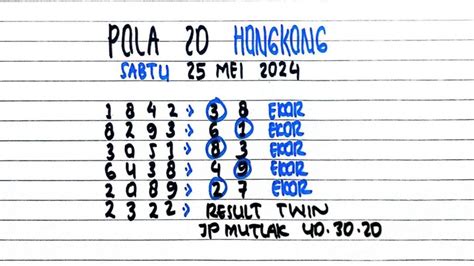 POLA 2D HONGKONG
SABTU 25 MEI 2024
1842 » 3 8 EKOR
8293 » 6 1 EKOR
3051 » 8 3 EKOR
6438 » 4 9 EKOR
2089 » 2 7 EKOR
2322 » RESULT TWIN
JP MUTLAK 40.30.20